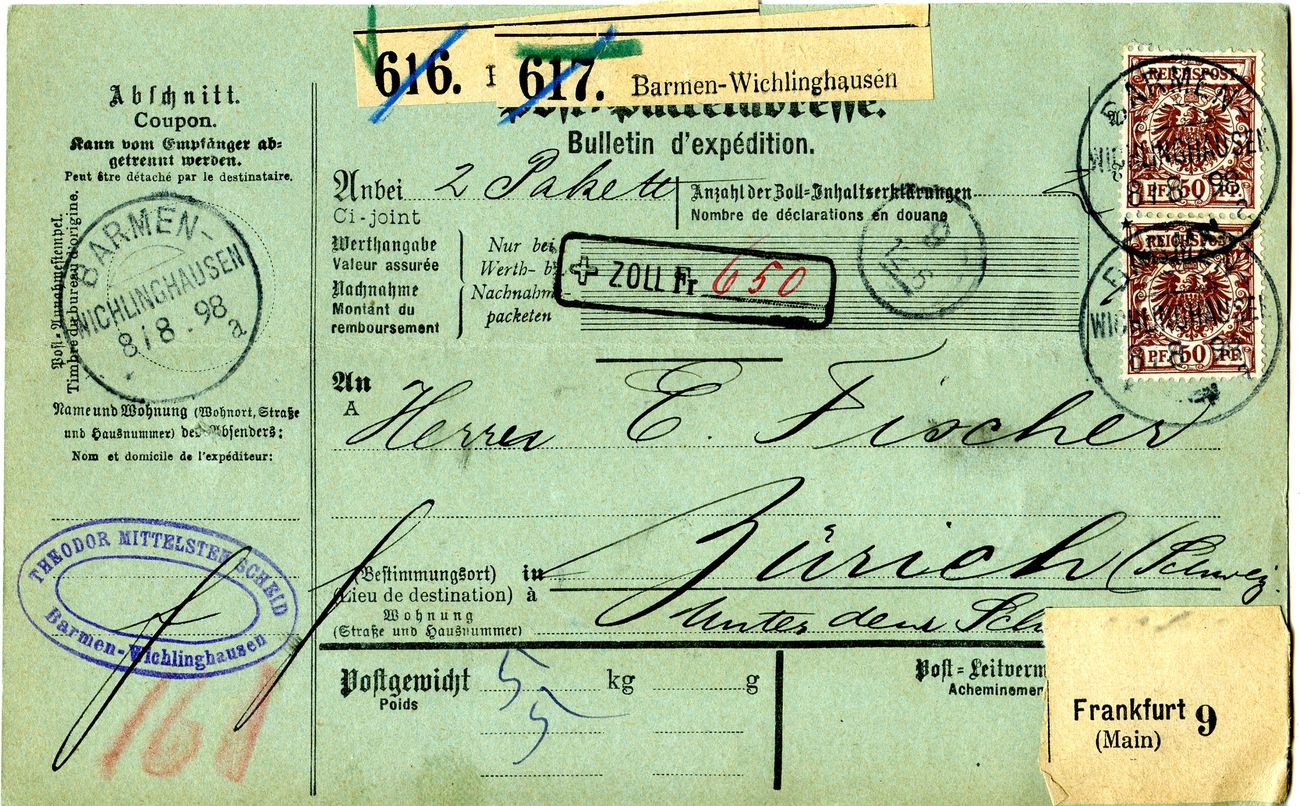 616.
617. Barmen-Wichlinghausen
Bulletin d'expédition.
Abschnitt.
Coupon.
Kann vom Empfänger ab-
getrennt werden.
Peut être détaché par le destinataire.
Post-Annahmestempel.
Timbre du bureau d'origine.
BARMEN-
WICHLINGHAUSEN
8 18.98
a
Name und Wohnung (Wohnort, Straße
und Hausnummer) des Absenders:
Nom et domicile de l'expéditeur:
THEODOR MITTELSTEN SCHEID
Barmen-Wichlinghausen
Anbei 2 Pakete
Ci-joint
Anzahl der Zoll-Inhaltserklärungen
Nombre de déclarations en douane
Werthangabe
Valeur assurée
Nachnahme
Montant du
remboursement
Nur bei
Werth- b
Nachnahme-
packeten
ZOLL Fr 650
REICHSPOST
PF. 50 PF.
BARMEN
WICHLINGHAUSEN
8 18.98
a
REICHSPOST
PF. 50 PF.
WICHLINGHAUSEN
a
An
A
Herrn E. Fischer
(Bestimmungsort) in
(Lieu de destination) à
Zürich (Schweiz
Wohnung
(Straße und Hausnummer)
Unter den Sch
Postgewicht
Poids
5 kg g
5
Post-Leitverm
Acheminemen
Frankfurt 9
(Main)